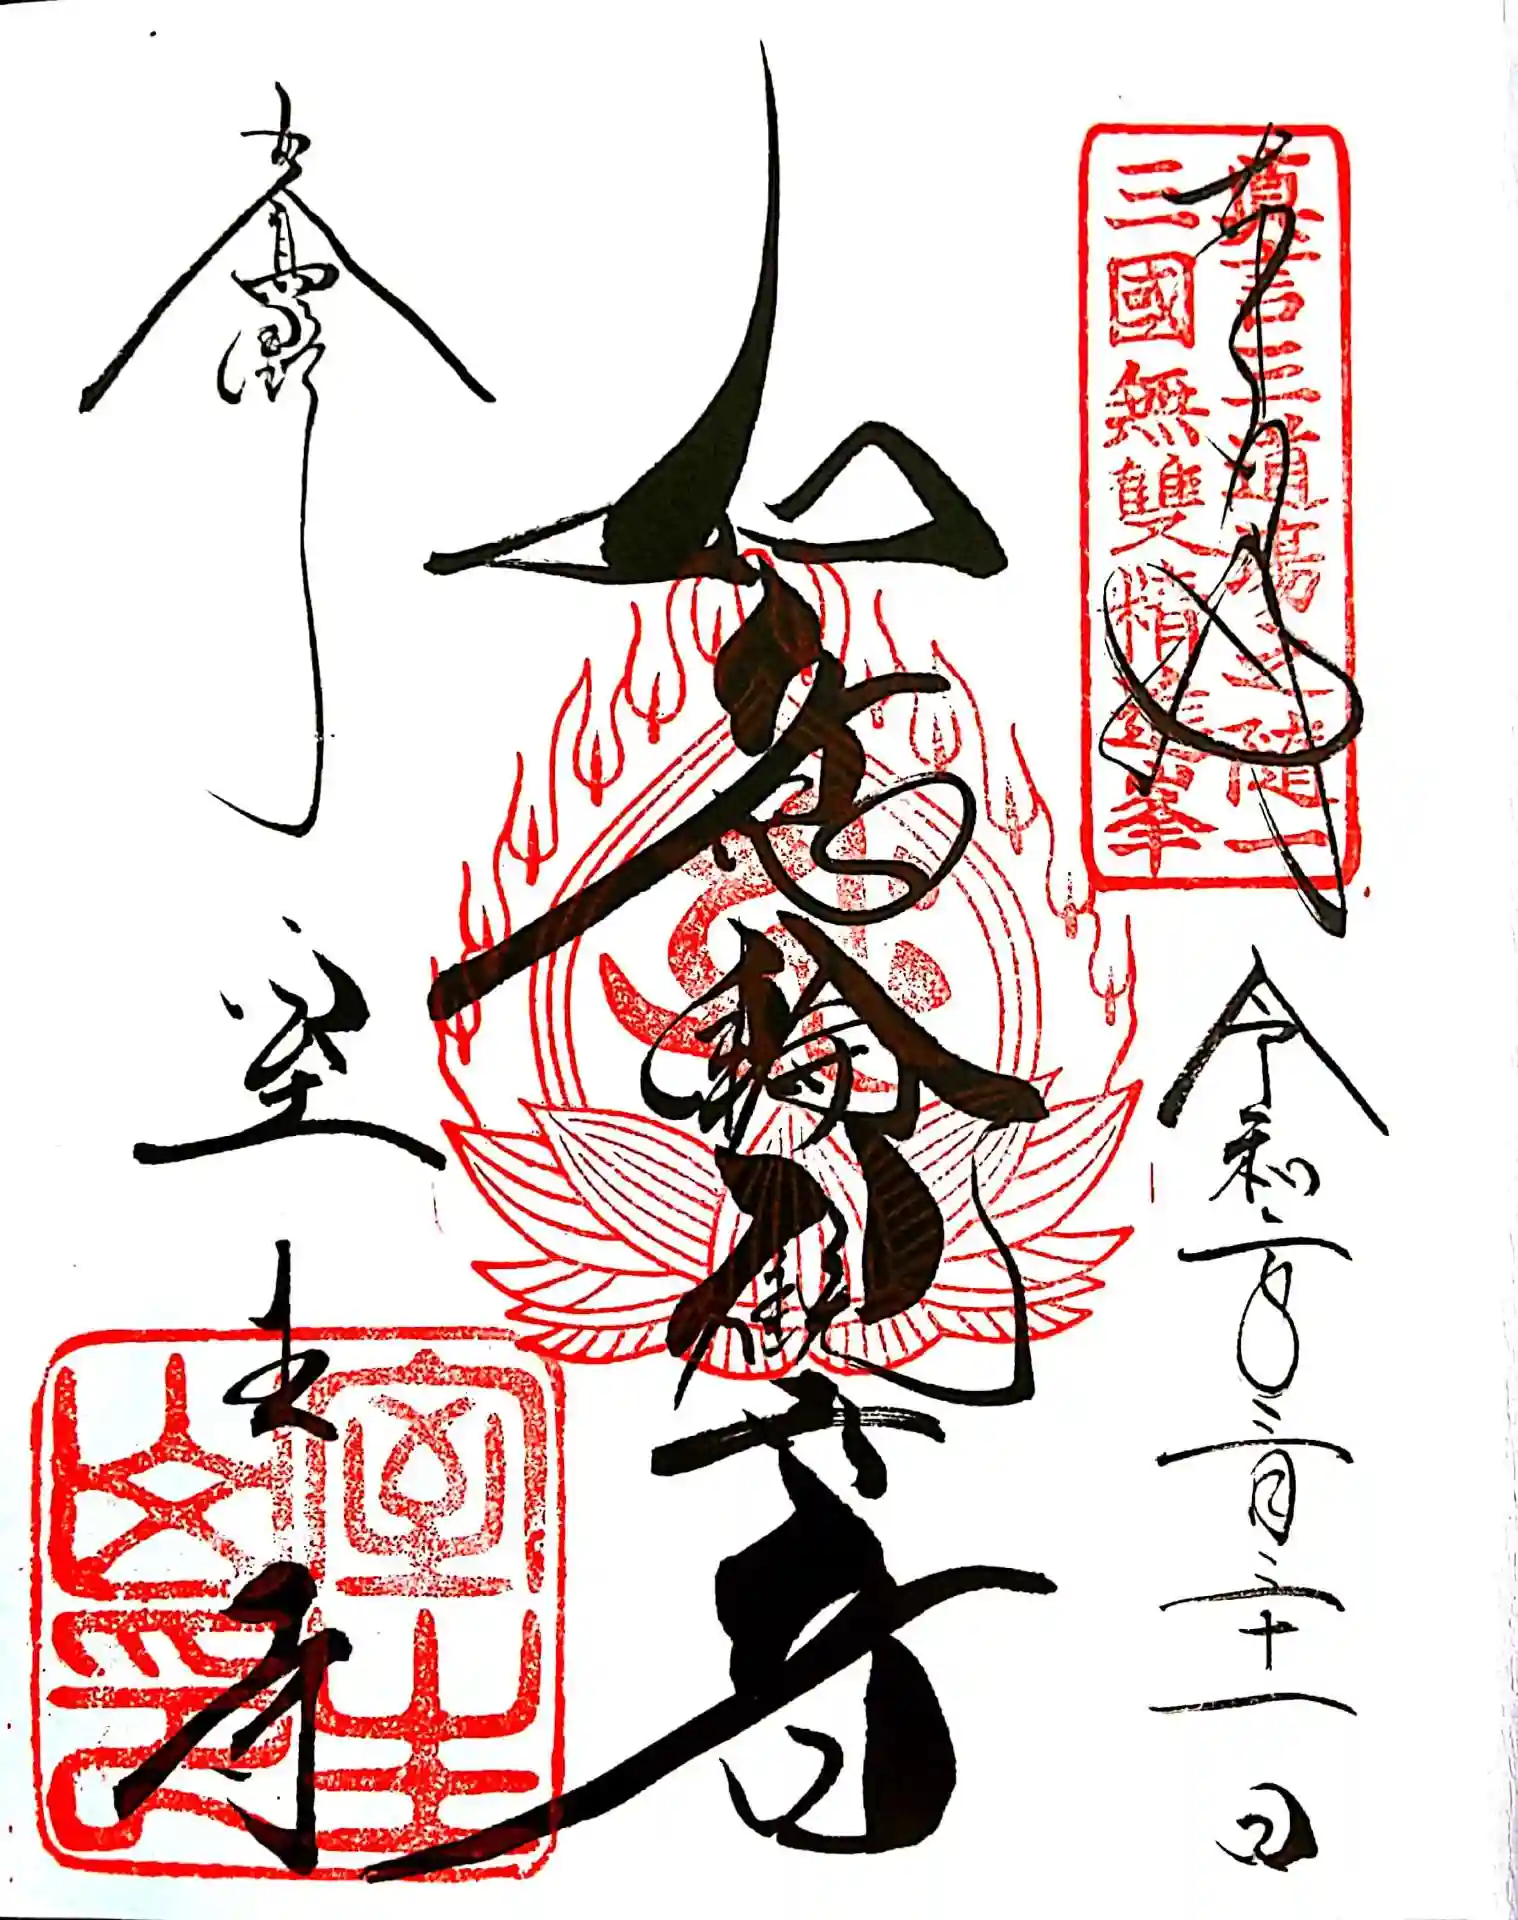 奉拝
真言三道場之随一
三國無雙精進峯
令和二年三月二十一日
如意輪観音
女人高野
室生寺
室生山印